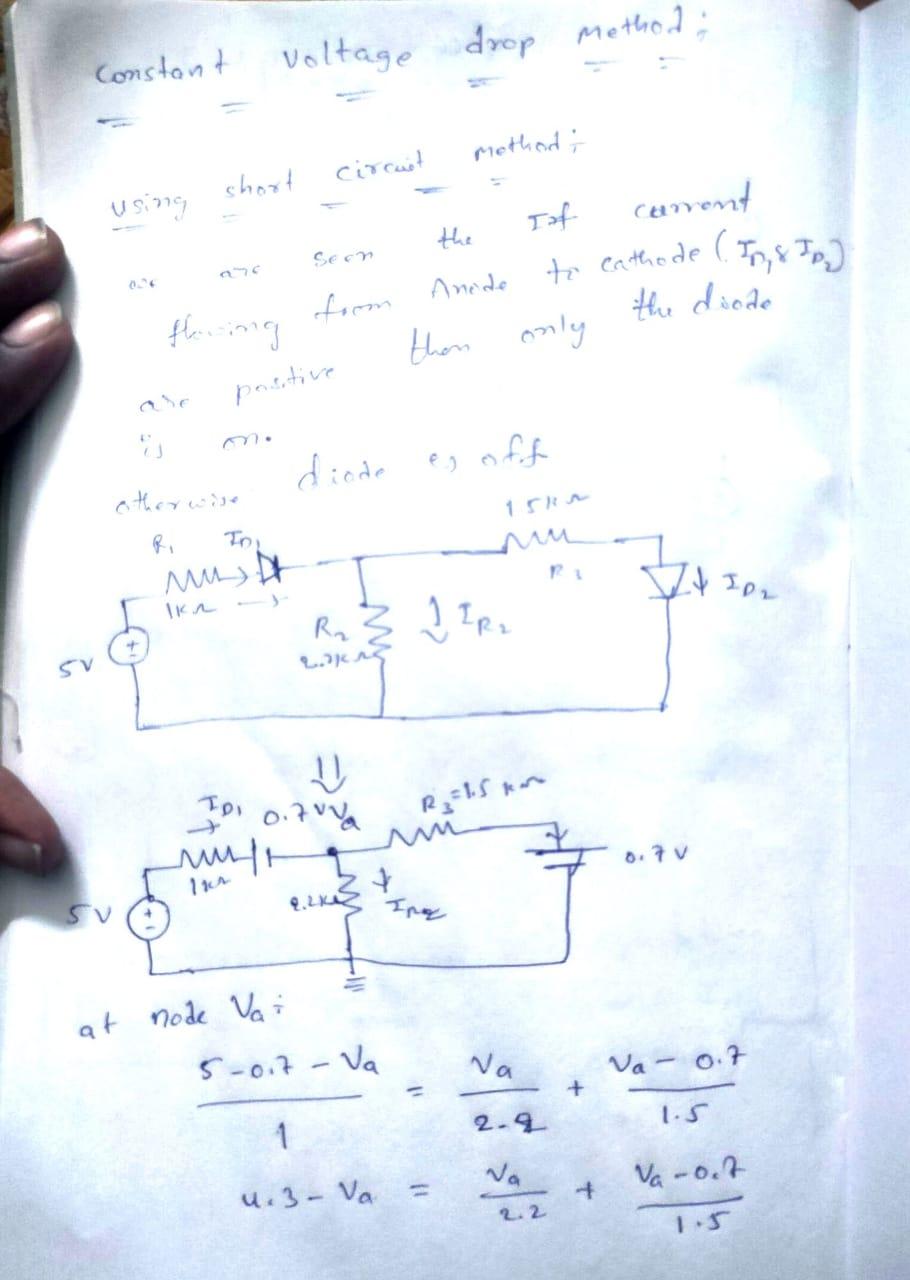 Constant Voltage drop Method:
using short circuit Method:
we are seen the If current
flowing from Anode to cathode (ID1 & ID2)
are positive then only the diode
is on.
otherwise diode is off
R1 ID1
1KΩ
5V
R2
2.2KΩ
IR2
1.5KΩ
R3
ID2
⇓
ID1 0.7V Va R3=1.5 KΩ
1KΩ
5V
2.2KΩ
IR2
0.7V
at node Va:
5-0.7-Va / 1 = Va / 2.2 + Va-0.7 / 1.5
4.3-Va = Va / 2.2 + Va-0.7 / 1.5